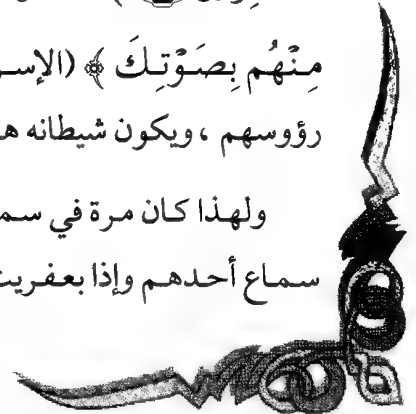 مِنْهُم بِصَوْتِكَ ﴾ (الإسـ
رؤوسهم ، ويكون شيطانه هـ
ولهذا كان مرة في سمـ
سماع أحدهم وإذا بعفريت